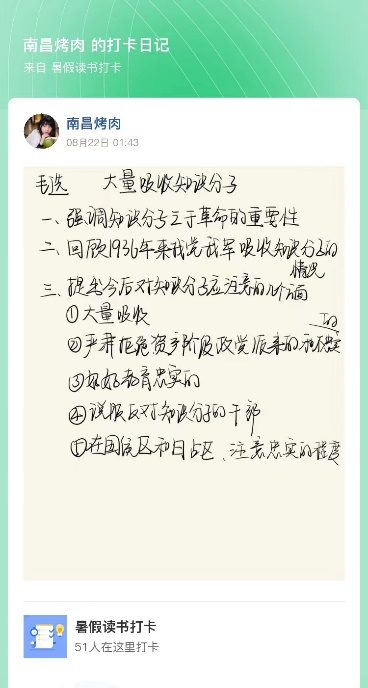 南昌烤肉 的打卡日记
来自 暑假读书打卡
南昌烤肉
08月22日 01:43
毛选 大量吸收知识分子
一、强调知识分子之于革命的重要性
二、回顾1936年来我党我军吸收知识分子的
情况
三、提出今后对知识分子应注意的几个方面
①大量吸收
②严肃拒绝资产阶级政党派来的和不忠实
的
③好好教育忠实的
④说服反对知识分子的干部
⑤在国统区和日占区、注意忠实的程度
暑假读书打卡
51人在这里打卡